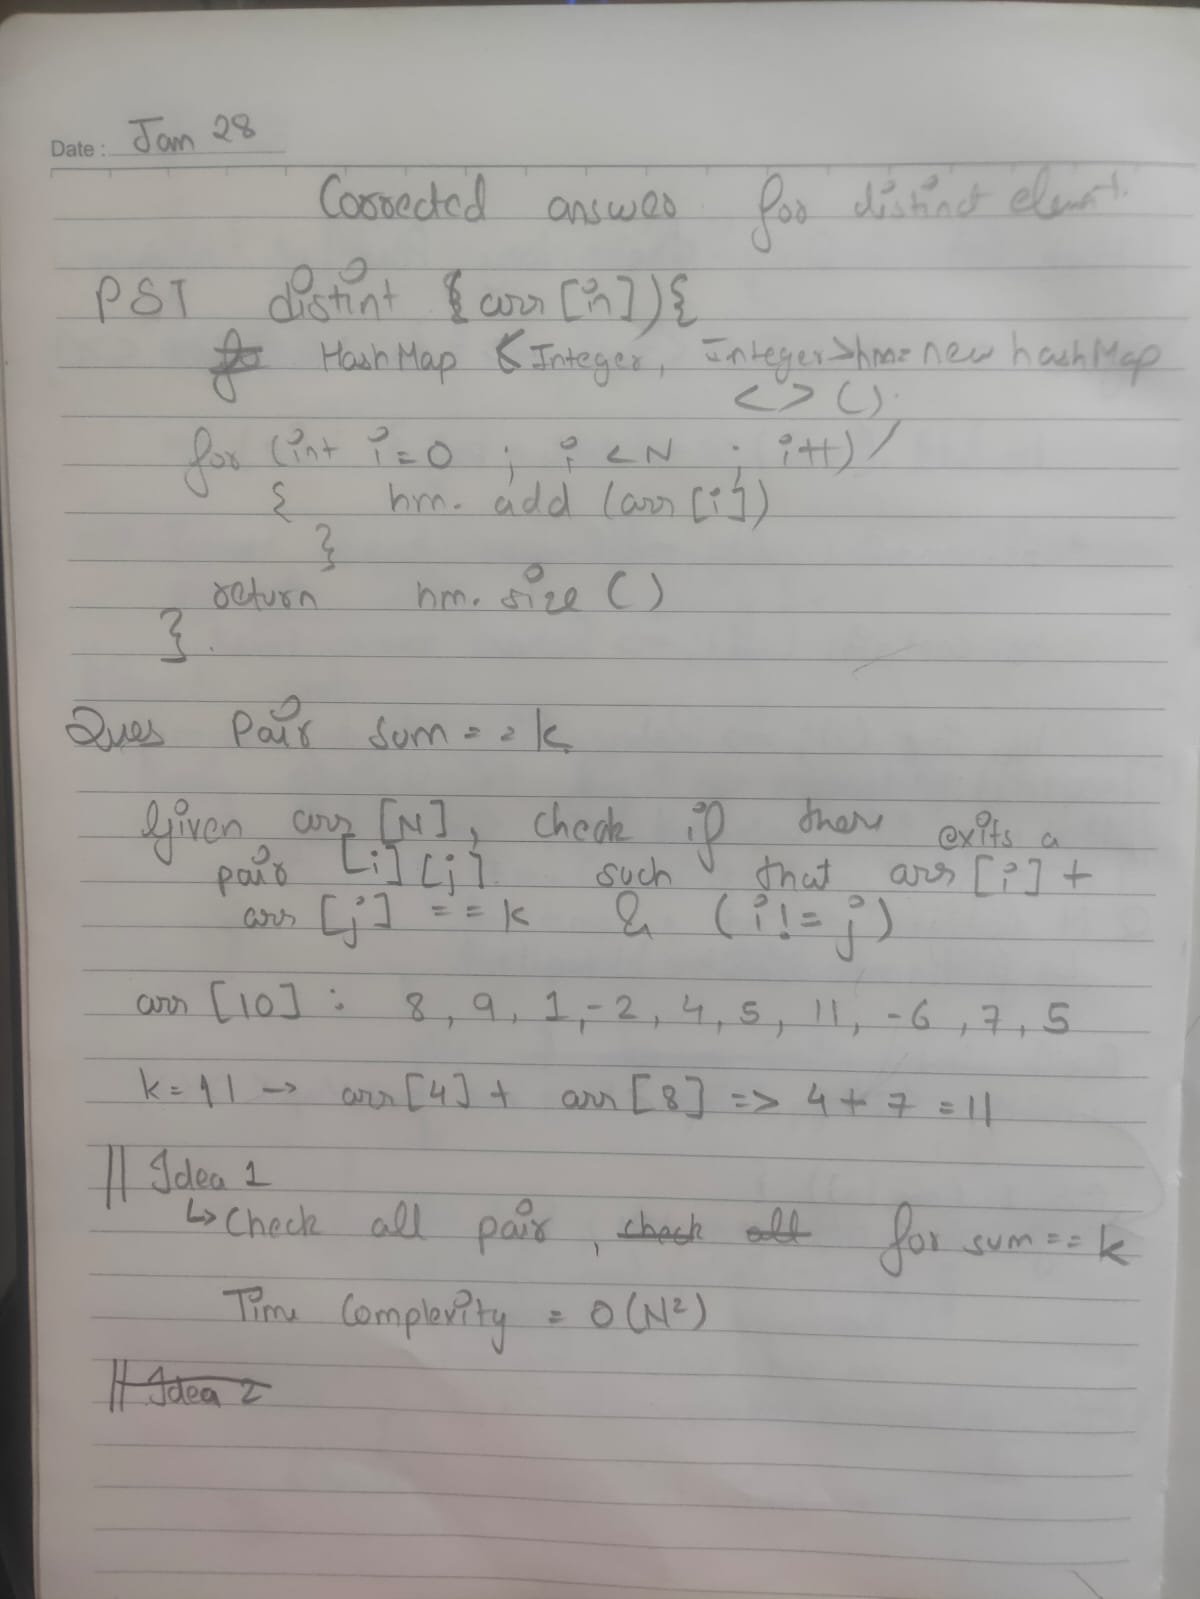 Date: Jan 28
Corrected answer for distinct element.
PST distint {arr [in]){
HashMap <Integer, Integer>hm= new hashMap
<> ().
for (int i=0 ; i <N ; i++)
{ hm. add (arr [i])
}
return hm. size ()
}
Ques Pair sum == k
Given arr [N], check if there exits a
pair [i][j] such that arr [i] +
arr [j] == k & (i!=j)
arr [10] : 8, 9, 1, -2, 4, 5, 11, -6, 7, 5
k=11 -> arr [4] + arr [8] => 4 + 7 = 11
|| Idea 1
↳ Check all pair, check all for sum == k
Time Complexity = O(N²)
|| Idea 2